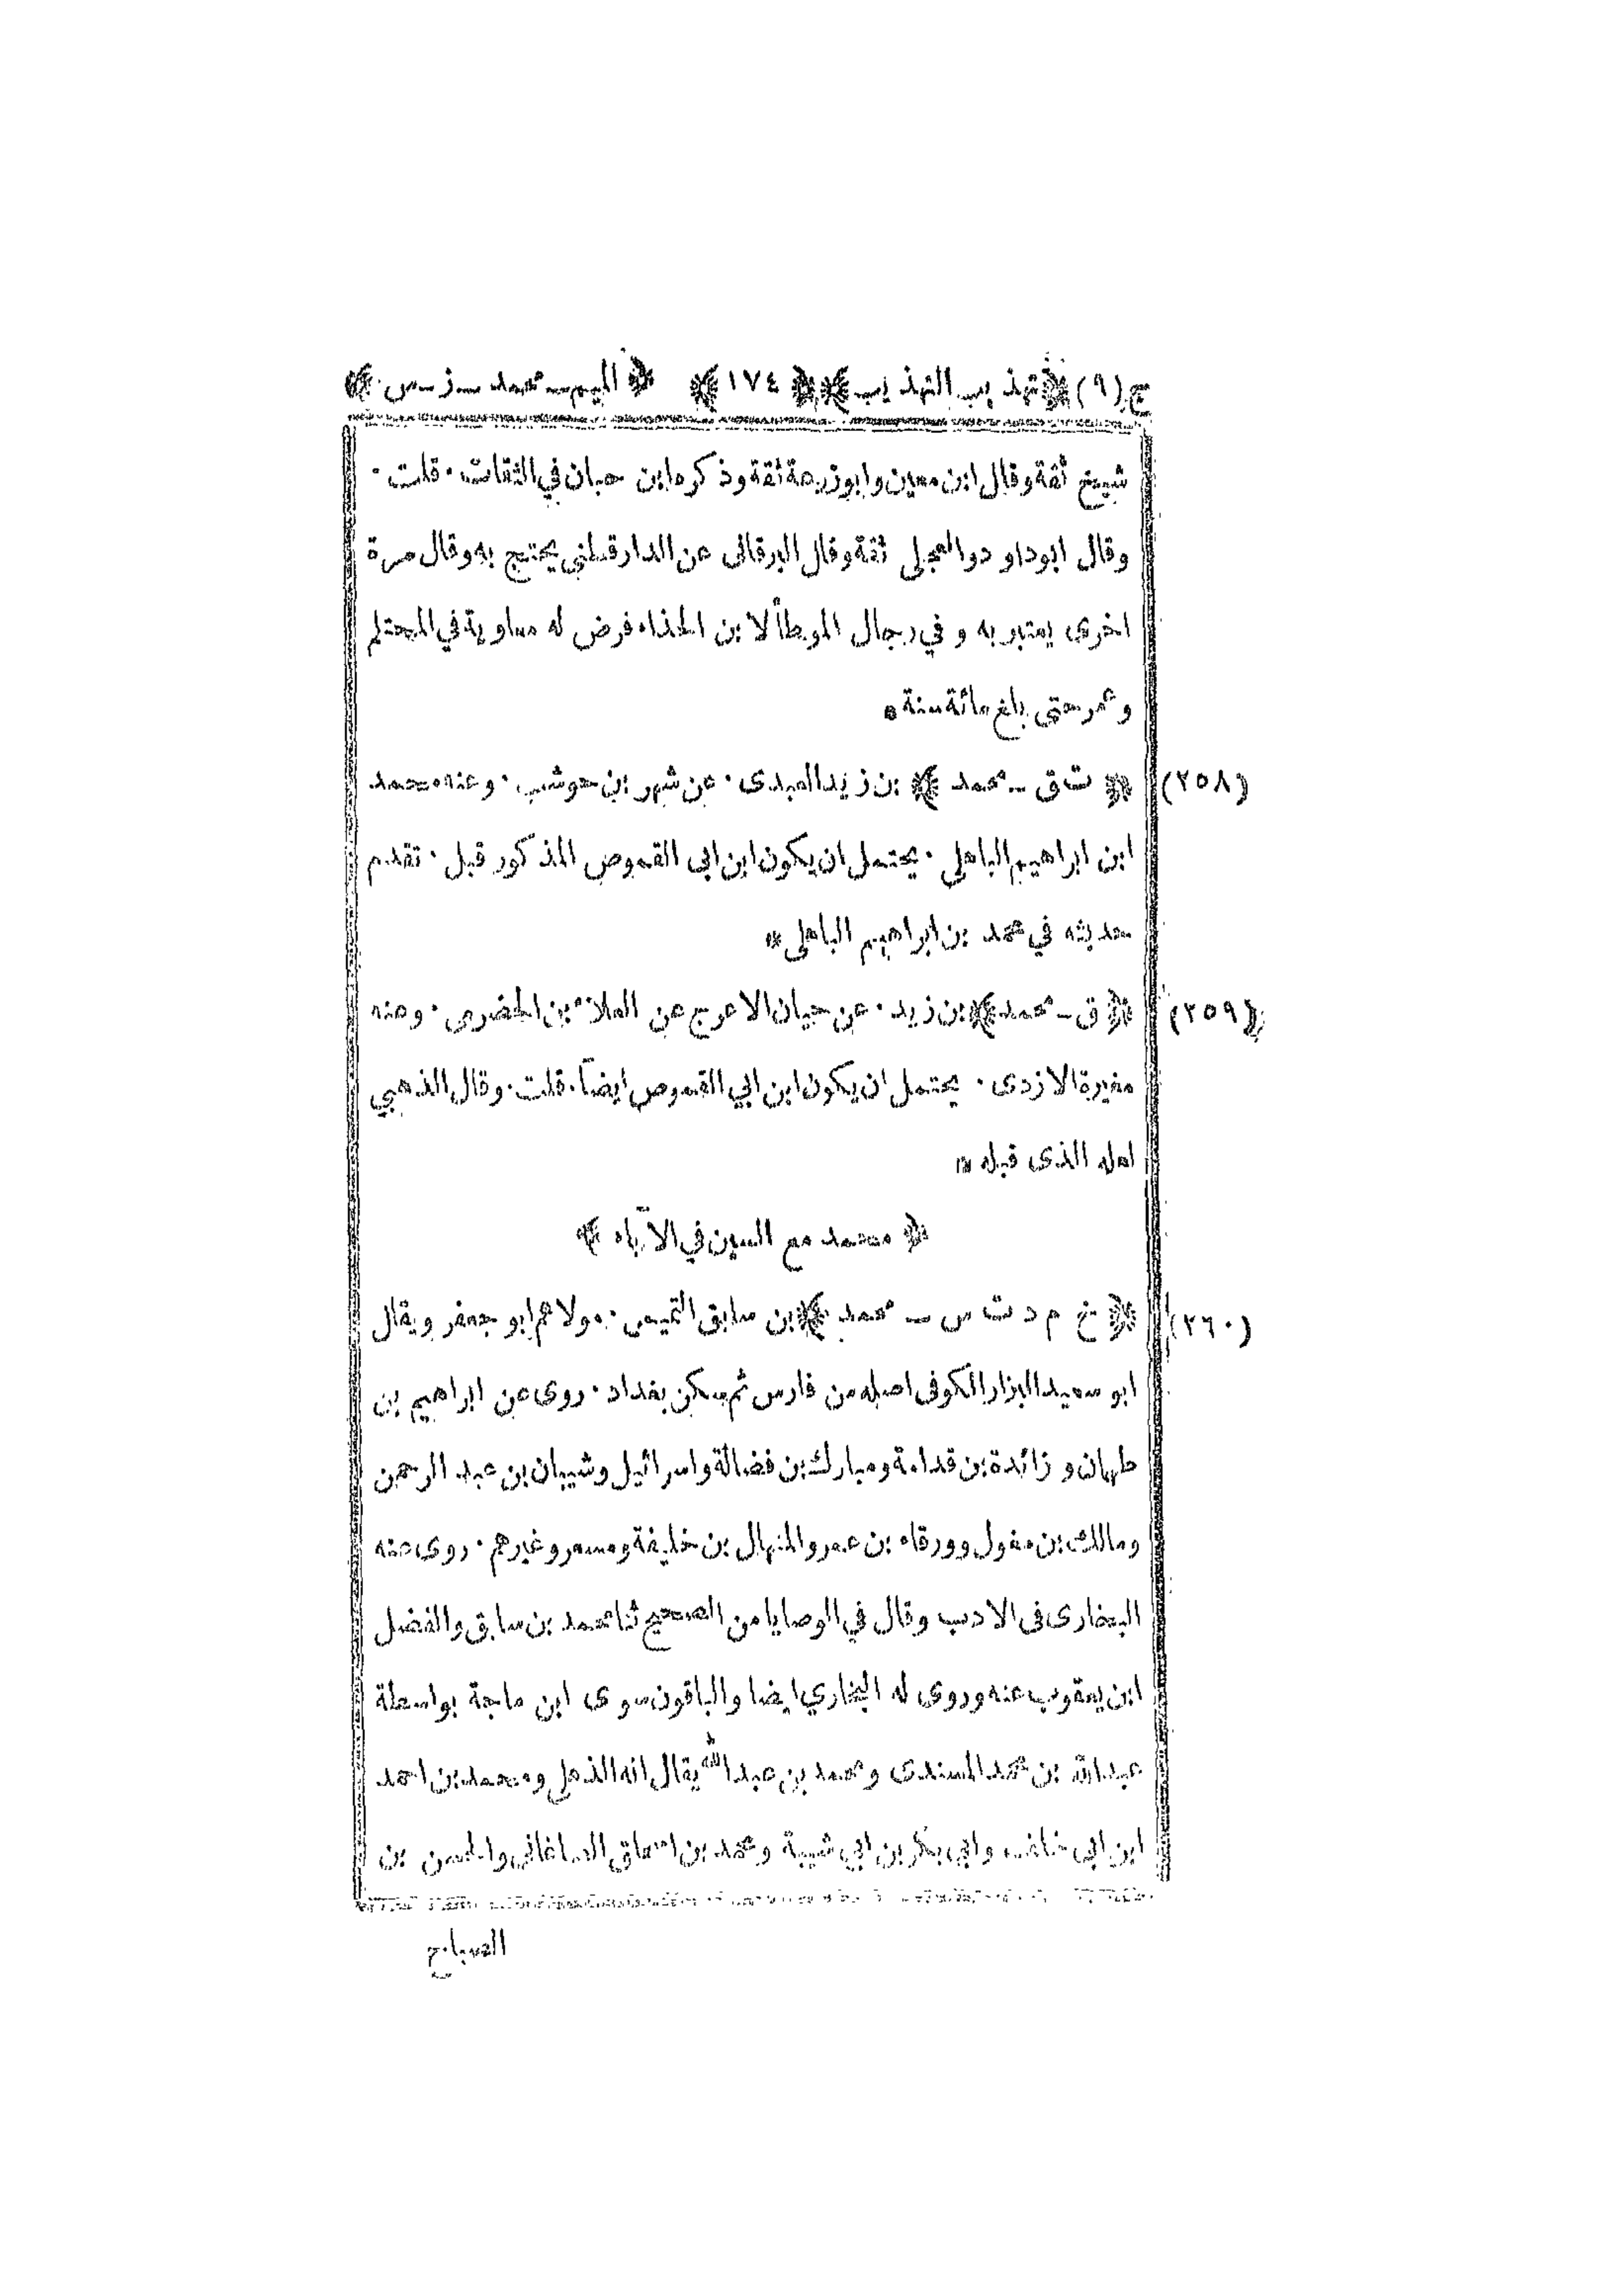 ج (٩) ﴿تهذيب التهذيب﴾ ﴿١٧٤﴾ ﴿الميم ـ محمد ـ ز ـ س﴾
شيخ ثقة وقال ابن معين وابو زرعة ثقة وذكره ابن حبان في الثقات · قلت ·
وقال ابوداود والعجلى ثقة وقال البرقانى عن الدارقطني يحتج به وقال مرة
اخرى يعتبر به و في رجال الموطأ لابن الحذاء فرض له معاوية في المحتلم
وعمر حتى بلغ مائة سنة *
(٢٥٨) ﴿ت ق ـ محمد﴾ بن زيد العبدى · عن شهر بن حوشب · وعنه محمد
ابن ابراهيم الباهلي · يحتمل ان يكون ابن ابى القموص المذكور قبل · تقدم
حديثه في محمد بن ابراهيم الباهلى *
(٢٥٩) ﴿ق ـ محمد﴾ بن زيد · عن حيان الاعرج عن العلاء بن الحضرمى · وعنه
مغيرة الازدى · يحتمل ان يكون ابن ابي القموص ايضاً · قلت · وقال الذهبي
لعله الذى قبله *
﴿محمد مع السين في الآباء﴾
(٢٦٠) ﴿خ م د ت س ـ محمد﴾ بن سابق التميمى · مولاهم ابو جعفر ويقال
ابو سعيد البزار الكوفى اصله من فارس ثم سكن بغداد · روى عن ابراهيم بن
طهمان و زائدة بن قدامة ومبارك بن فضالة واسرائيل وشيبان بن عبد الرحمن
ومالك بن مغول وورقاء بن عمر والمنهال بن خليفة ومسعر وغيرهم · روى عنه
البخارى فى الادب وقال في الوصايا من الصحيح ثنا محمد بن سابق والفضل
ابن يعقوب عنه وروى له البخاري ايضا والباقون سوى ابن ماجة بواسطة
عبدالله بن محمد المسندى ومحمد بن عبدالله يقال انه الذهلى ومحمد بن احمد
ابن ابى خلف وابي بكر بن ابي شيبة ومحمد بن اسحاق الصاغانى والحسن بن
الصباح